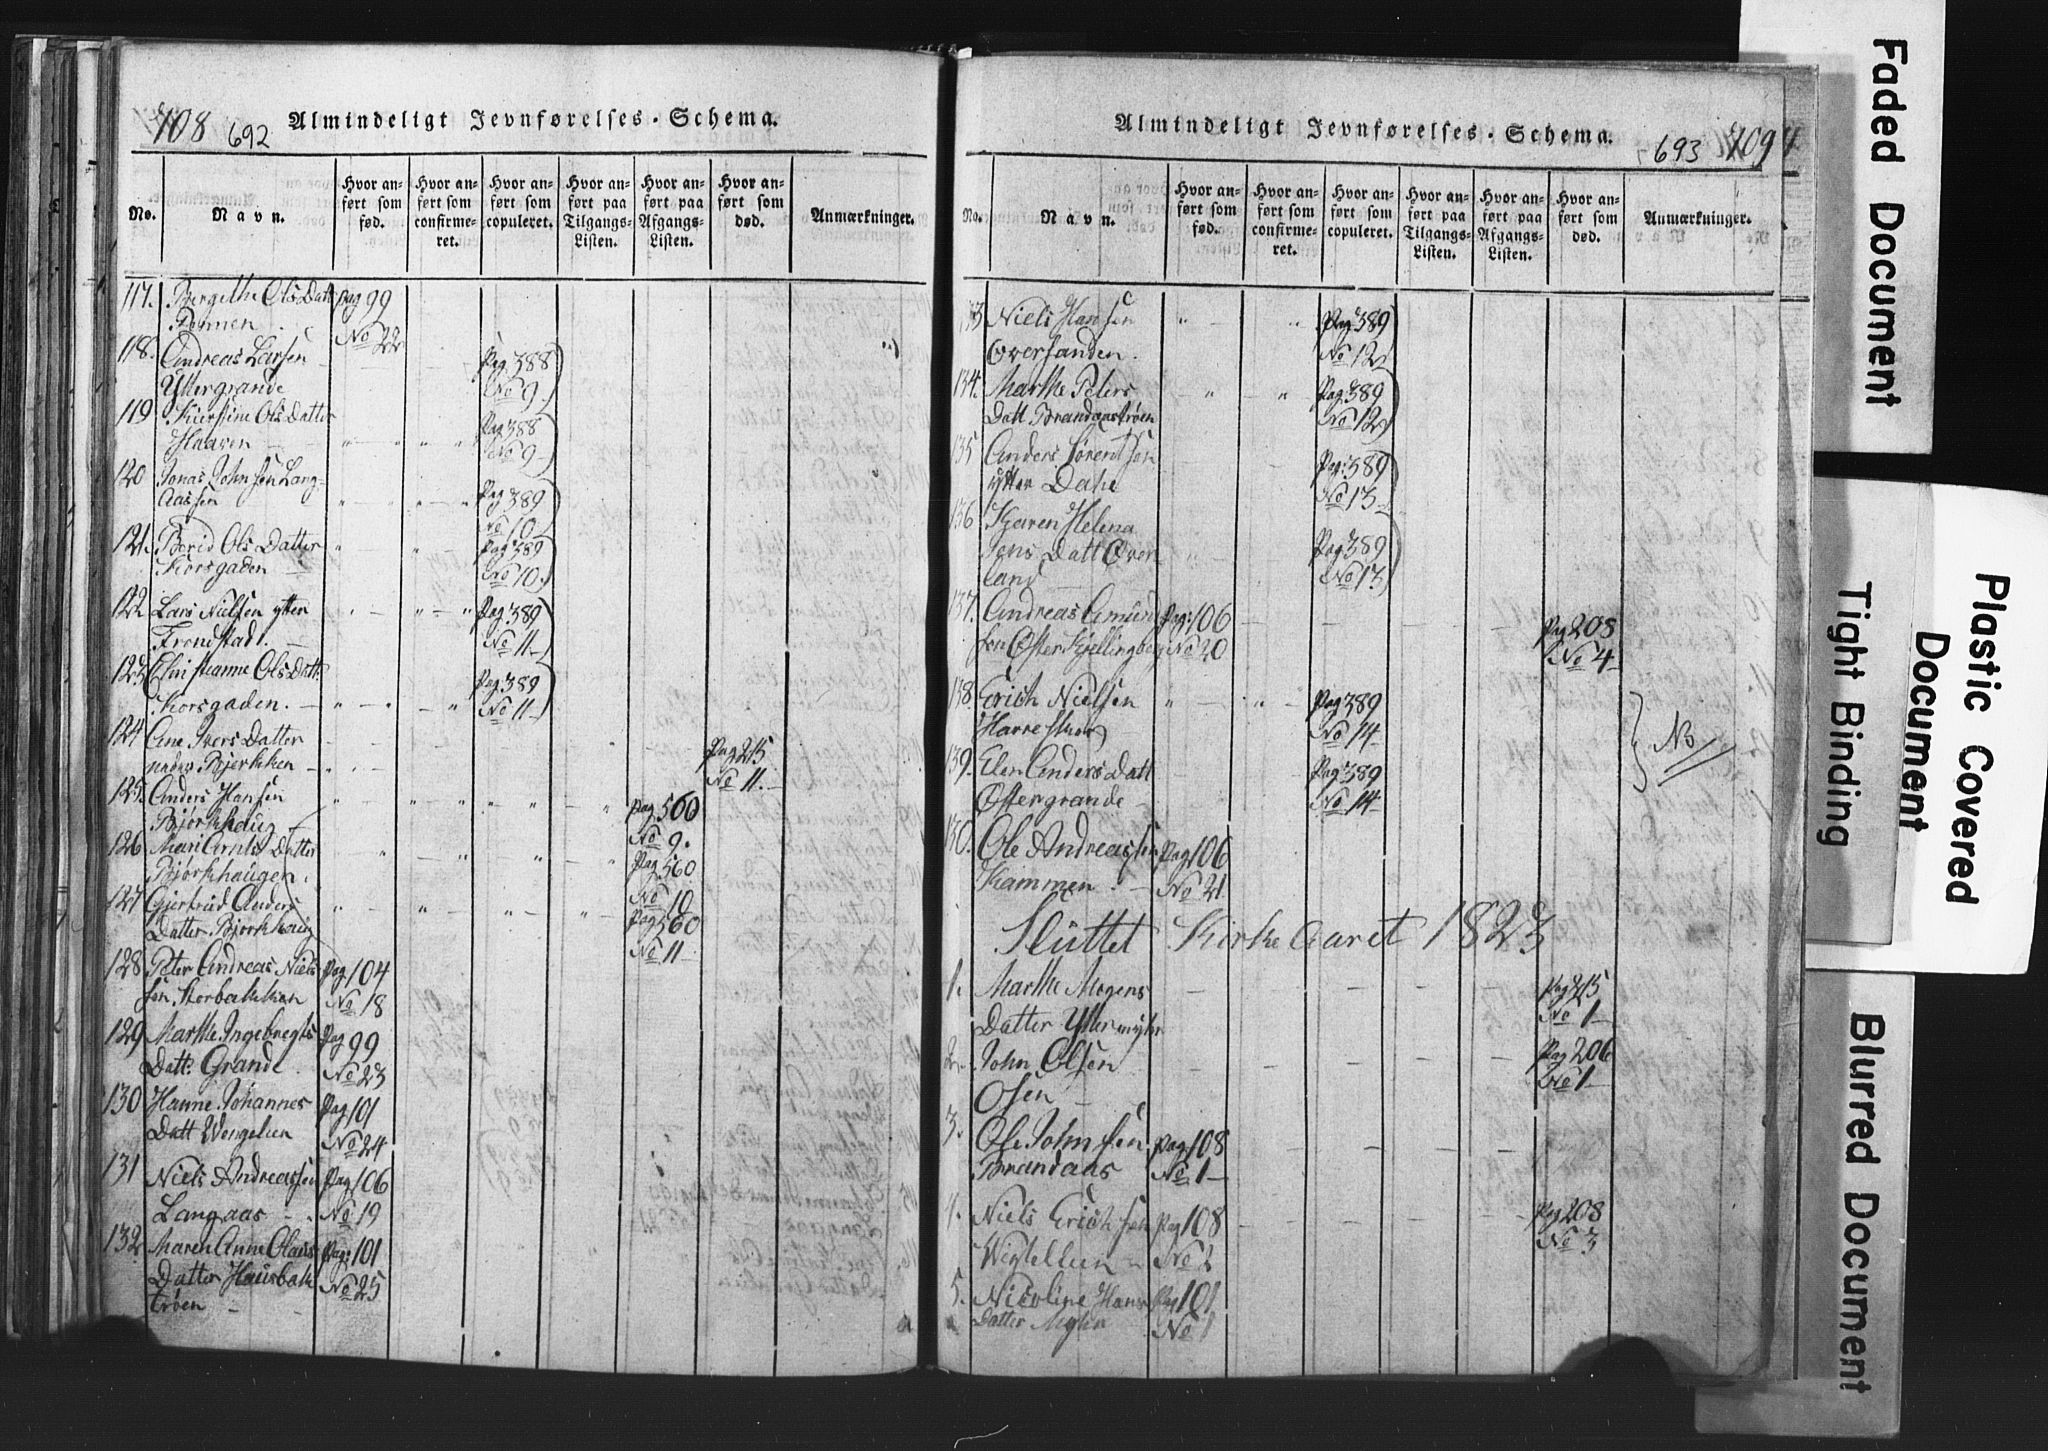 708 692 Almindeligt Jevnførelses-Schema.
No. Navn. Hvor anført som fød. Hvor anført som confirmeret. Hvor anført som copuleret. Hvor anført paa Tilgangs-Listen. Hvor anført paa Afgangs-Listen. Hvor anført som død. Anmærkninger.
117. Bergithe Ols Datt Pag 99
No 22
118. Andreas Larsen Pag 388
Yttergrande No 9
119 Kierstine Ols Datter Pag 388
Haaren No 9
120 Jonas Johnsen Lang- Pag 389
aassen No 10
121. Berid Ols Datter Pag 389
Korsgaden No 10.
122 Lars Nielsen ytter Pag 389
Trondstad. No 11
123 Christianne Ols Datt. Pag 389
Korsgaden. No 11
124 Ane Ivers Datter Pag 215
Bjerkken No 11.
125. Anders Hansen Pag 560
Bjørkhaug No 9.
126 Mari Arnts Datter Pag 560
Bjørkhaugen. No 10
127 Gjertrud Anders Pag 560
Datter Bjørkhaug No 11
128 Peter Andreas Niels Pag 104
sen Storbakken No 18
129 Marthe Ingebregts Pag 99
Datt. Grande No 23
130 Hanne Johannes Pag 101
Datt Wengelien No 24
131 Niels Andreassen Pag 106
Langaas No 19
132 Maren Anne Olaus Pag. 101
Datter Hausbak No 25
trøen
Almindeligt Jevnførelses-Schema. 693 7094
No. Navn. Hvor anført som fød. Hvor anført som confirmeret. Hvor anført som copuleret. Hvor anført paa Tilgangs-Listen. Hvor anført paa Afgangs-Listen. Hvor anført som død. Anmærkninger.
133 Niels Hansen Pag 389
Oversanden. No 12
134. Marthe Peters Pag 389
Datt Brandaastrøen No 12
135 Anders Sørentsen Pag 389
ytter Dahe No 13
136 Karen Helena
Jens Datt Over Pag 389
land No 13
137. Andreas Amund Pag. 106 Pag 208
sen Øster Kjellingberg No 20 No 4
138. Erich Nielsen Pag 389
No 14 No
139. Elen Anders Datt Pag 389
Østergrande No 14
140. Ole Andreassen Pag 106
Kammen. No 21
Sluttet Kirke Aaret 1823
1. Marthe Mogens Pag 215
Datter Yttermyhr No 1
2. John Olsen Pag 206
Osen No 1
3. Ole Johnsen Pag 108
Brandaas No 1
4. Niels Erichsen Pag 108 Pag 208
No 2 No 3
5. Nicoline Hans Pag 101
Datter Myhr No 1
Faded Document
Plastic Covered
Document
Tight Binding
Blurred Document